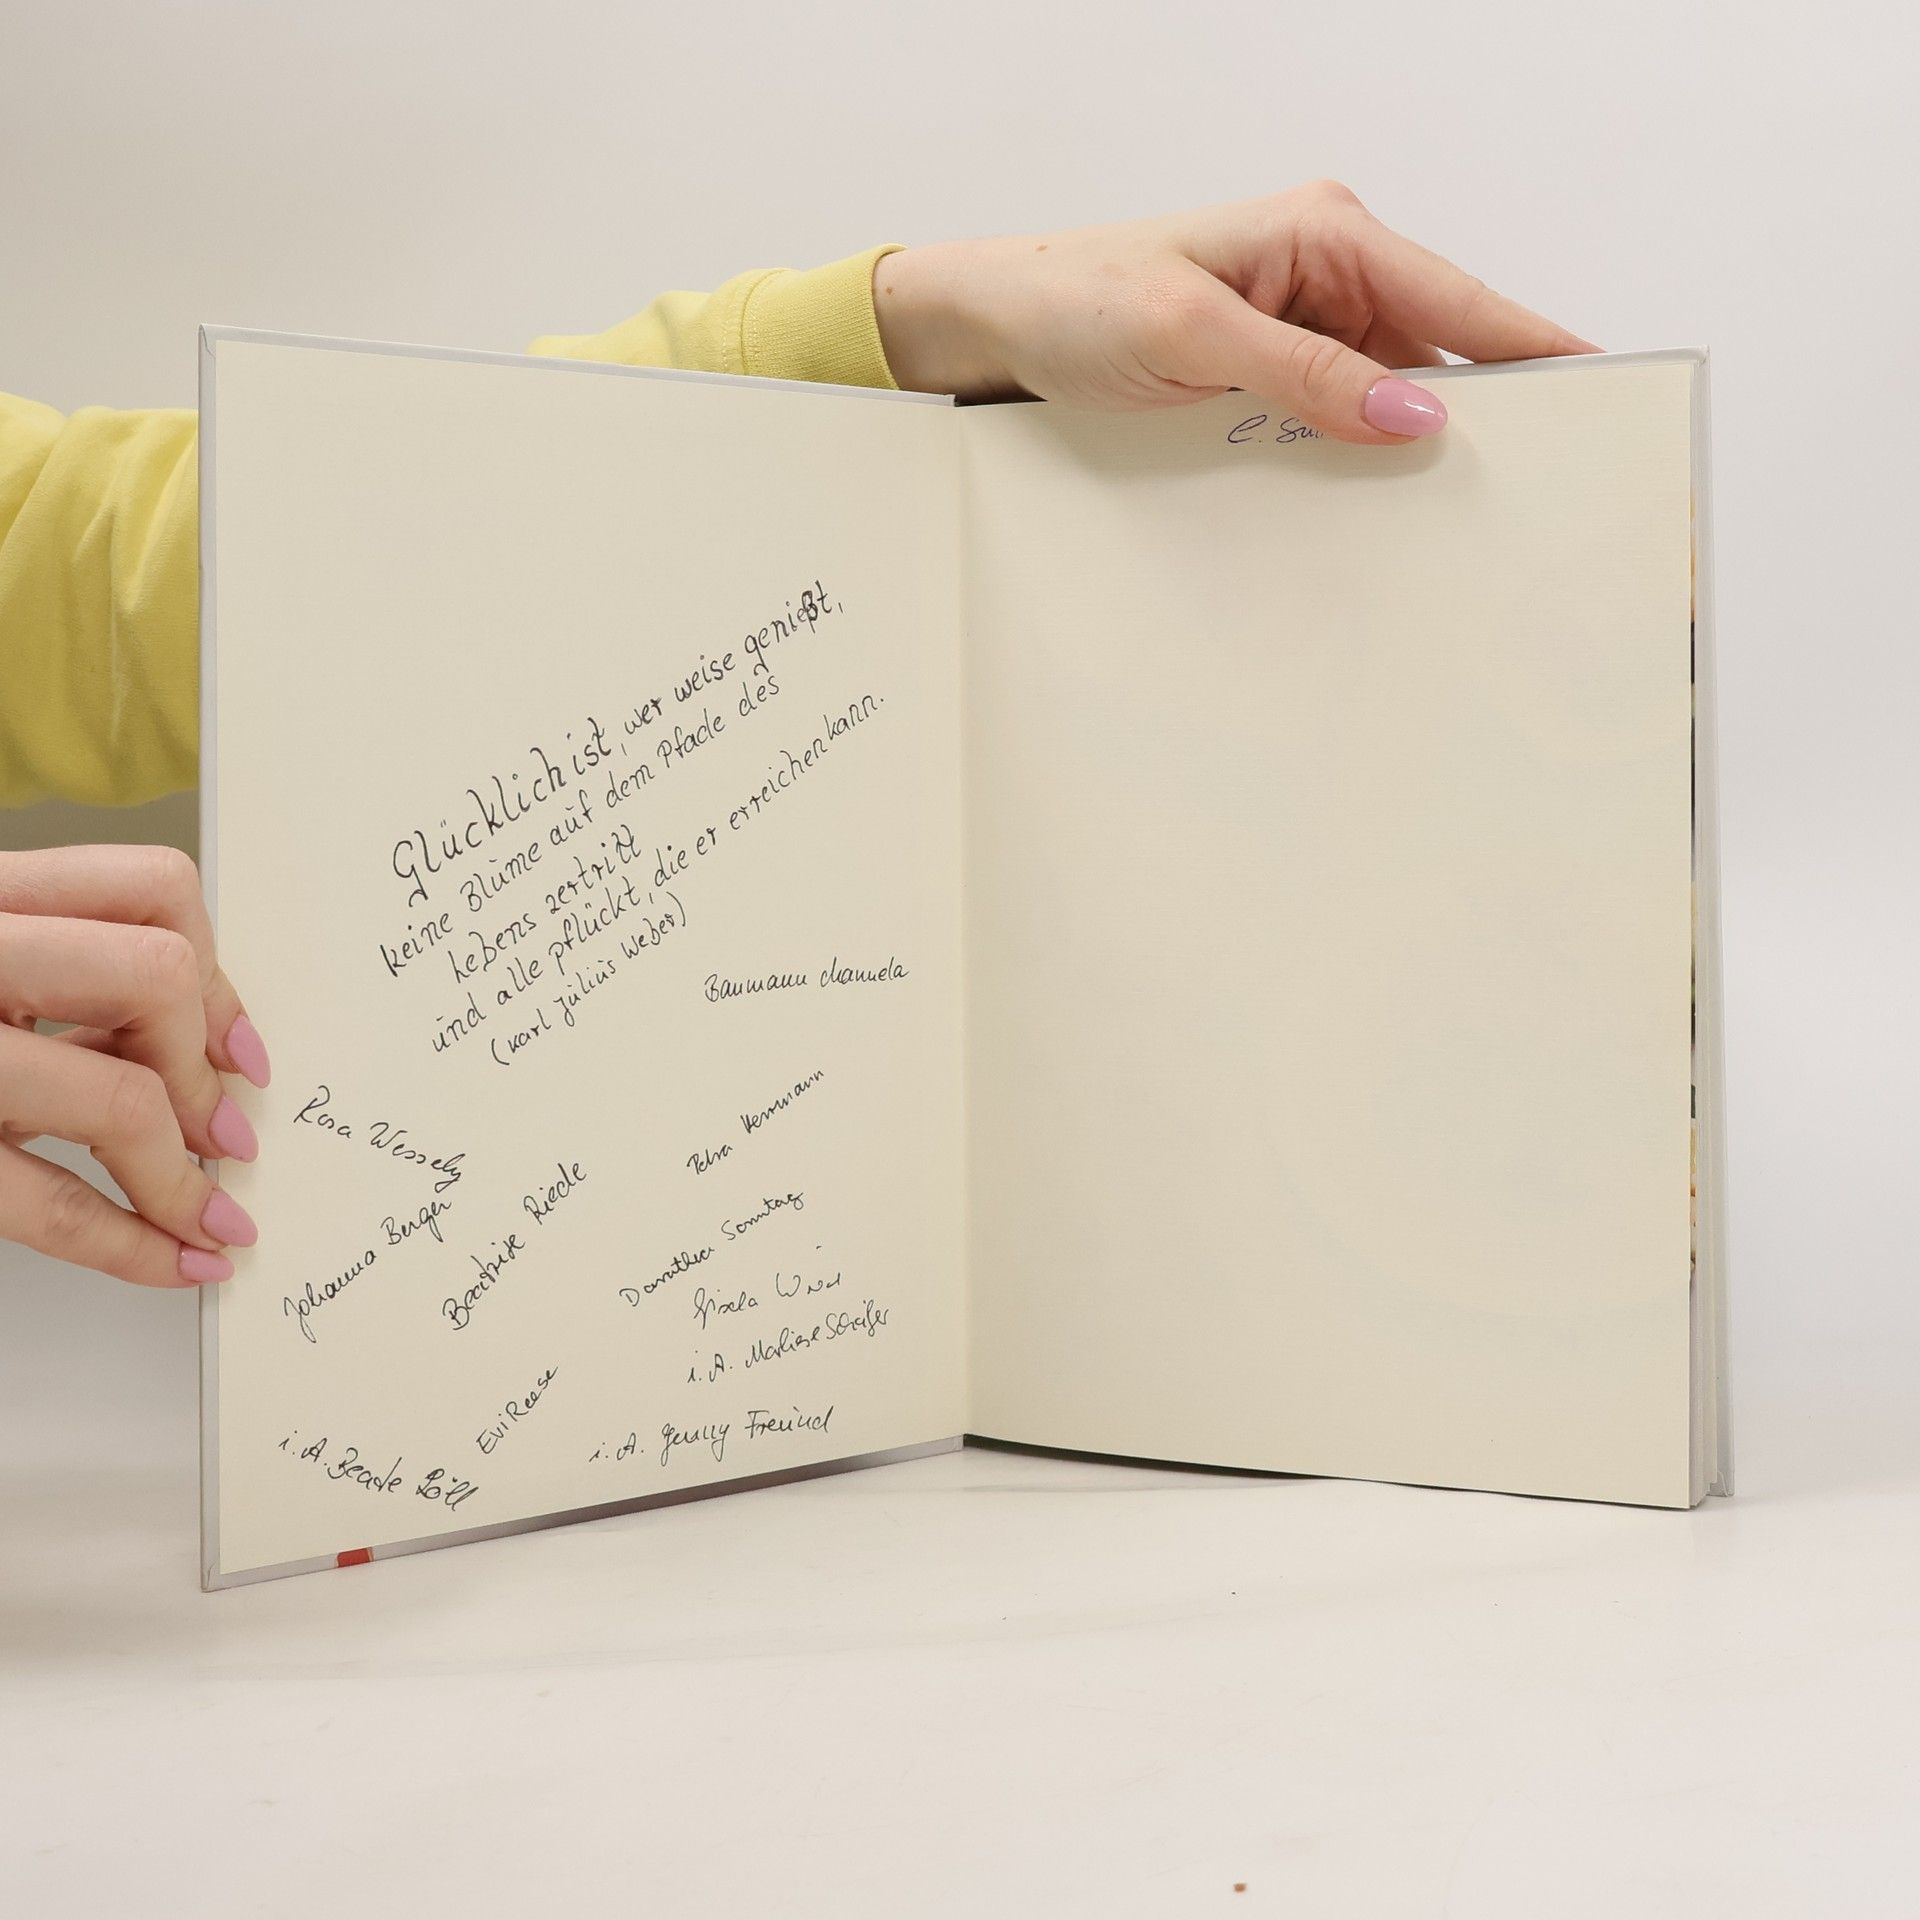 Glücklich ist, wer weise genießt,
keine Blume auf dem Pfade des
Lebens zertritt
und alle pflückt, die er erreichen kann.
(Karl Julius Weber)
Baumann Manuela
Rosa Wessely
Petra Herrmann
Johanna Berger
Beatrice Riede
Dorothea Sonntag
Gisela
i. A. Marliese Schäfer
Evi Reese
i. A. Jenny Freund
i. A. Beate Röll
C.